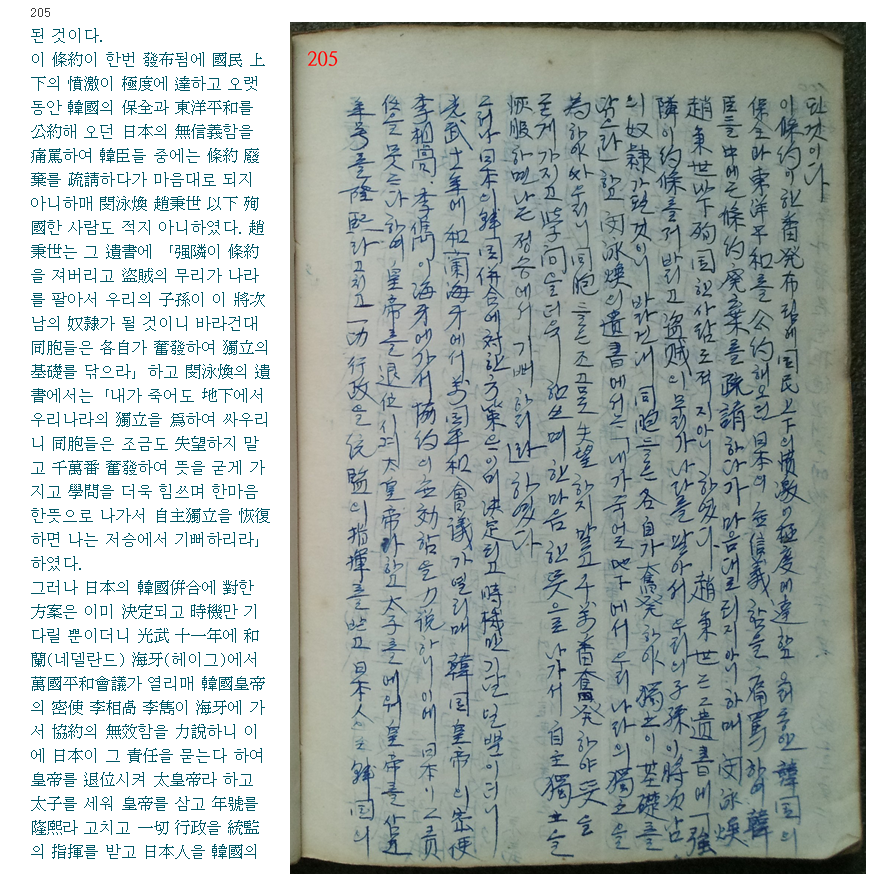 205
된 것이다.
이 條約이 한번 發布됨에 國民 上
下의 憤激이 極度에 達하고 오랫
동안 韓國의 保全과 東洋平和를
公約해 오던 日本의 無信義함을
痛罵하여 韓臣들 중에는 條約 廢
棄를 疏請하다가 마음대로 되지
아니하매 閔泳煥 趙秉世 以下 殉
國한 사람도 적지 아니하였다. 趙
秉世는 그 遺書에 「强隣이 條約
을 져버리고 盜賊의 무리가 나라
를 팔아서 우리의 子孫이 이 將次
남의 奴隸가 될 것이니 바라건대
同胞들은 各自가 奮發하여 獨立의
基礎를 닦으라」 하고 閔泳煥의 遺
書에서는 「내가 죽어도 地下에서
우리나라의 獨立을 爲하여 싸우리
니 同胞들은 조금도 失望하지 말
고 千萬番 奮發하여 뜻을 굳게 가
지고 學問을 더욱 힘쓰며 한마음
한뜻으로 나가서 自主獨立을 恢復
하면 나는 저승에서 기뻐하리라」
하였다.
그러나 日本의 韓國倂合에 對한
方案은 이미 決定되고 時機만 기
다릴 뿐이더니 光武 十一年에 和
蘭(네델란드) 海牙(헤이그)에서
萬國平和會議가 열리매 韓國皇帝
의 密使 李相卨 李儁이 海牙에 가
서 協約의 無效함을 力說하니 이
에 日本이 그 責任을 묻는다 하여
皇帝를 退位시켜 太皇帝라 하고
太子를 세워 皇帝를 삼고 年號를
隆熙라 고치고 一切 行政을 統監
의 指揮를 받고 日本人을 韓國의
205
된 것이다
이 條約이 한番 発布됨에 国民上下의 憤激이 極度에 達하고 오래동안 韓国의
保全과 東洋平和를 公約해오던 日本의 無信義함을 痛罵하여 韓
臣들 中에는 條約 廃棄를 疏請하다가 마음대로 되지 아니하매 閔泳煥
趙秉世 以下 殉国한 사람도 적지 아니하였다 趙秉世는 그 遺書에 「强
隣이 約條를 저바리고 盗賊의 무리가 나라를 팔아서 우리의 子孫이 將次 남
의 奴隷가 될 것이니 바라건대 同胞들은 各自가 奮発하야 獨立의 基礎를
닦으라」 하고 閔泳煥의 遺書에서는 「내가 죽어도 地下에서 우리나라의 獨立을
為하야 싸우리니 同胞들은 조금도 失望하지 말고 千万番 奮発하야 뜻을
굳게 가지고 学问을 더욱 힘쓰며 한마음 한뜻으로 나가서 自主獨立을
恢復하면 나는 저승에서 기뻐하리라 하였다
그러나 日本의 韓国併合에 対한 方策은 이미 決定되고 時機만 기다릴 뿐이더니
光武十一年에 和蘭海牙에서 万国平和會議가 열리매 韓国皇帝의 密使
李相卨 李儁이 海牙에 가서 協約의 無効함을 力説하니 이에 日本이 그 責
任을 뭇는다 하여 皇帝를 退位시켜 太皇帝라 하고 太子를 세워 皇帝를 삼고
年号를 隆熙라 고치고 一切 行政을 統監의 指揮를 받고 日本人을 韓国의